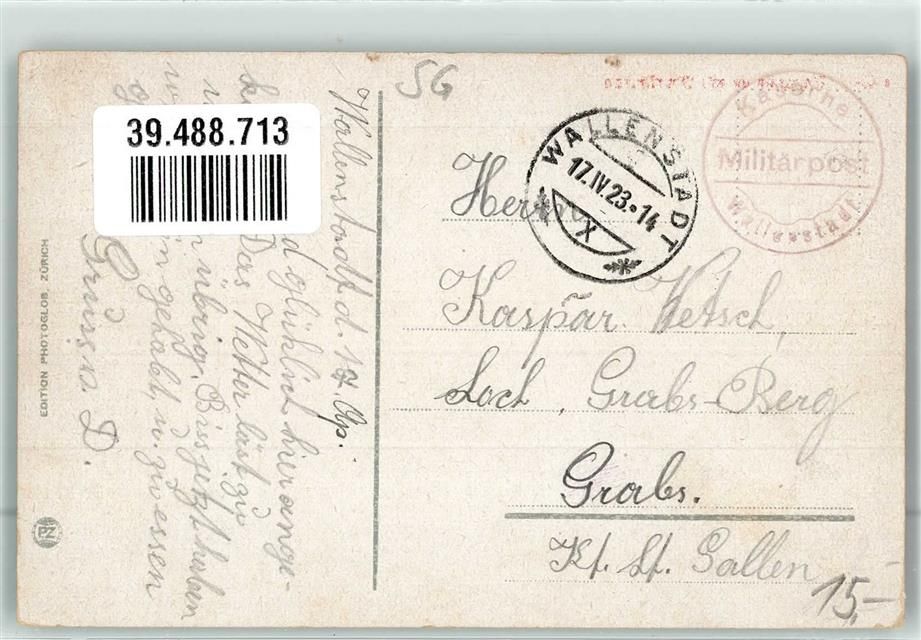 SG
Kaserne
Militärpost
Wallenstadt
WALLENSTADT
17.IV.23.-14
X
Herrn
Kaspar Vetsch,
Loch, Grabs-Berg
Grabs.
Kt. St. Gallen
15,-
Wallenstadt d. 17. Ap.
d glüklich hierange-
Das Wetter läst zu
n übrig. Bis jetzt haben
n gehabt, u. zu essen
Gruss v. D.
39.488.713
EDITION PHOTOGLOB, ZÜRICH
PZ